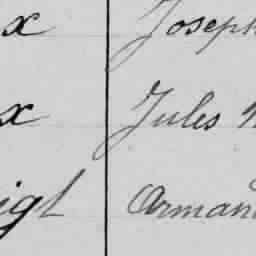 x Joseph
x Jules
igt Arman